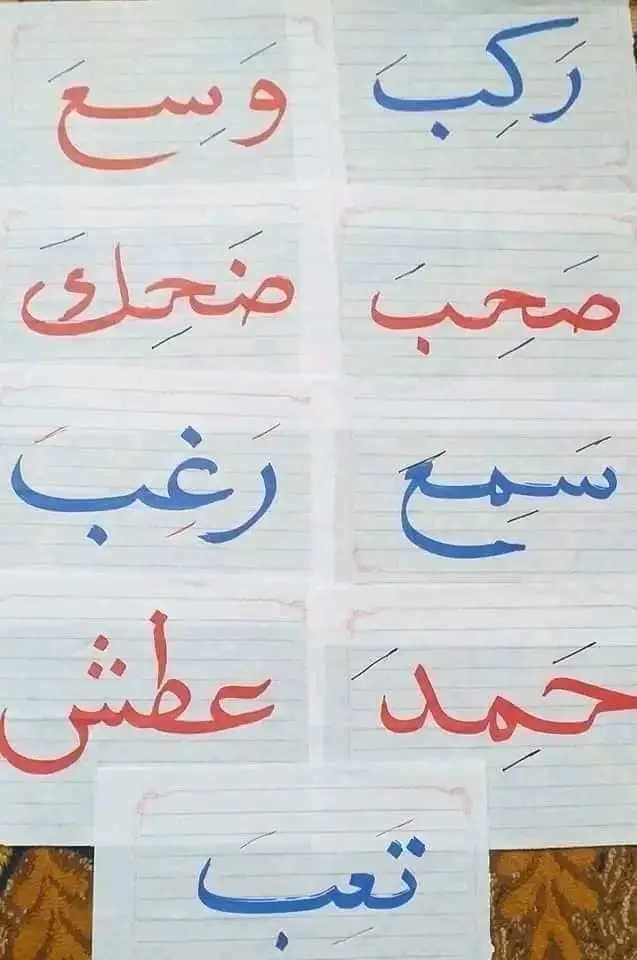 رَكِبَ وَسِعَ
صَحِبَ ضَحِكَ
سَمِعَ رَغِبَ
حَمِدَ عطش
تَعِبَ